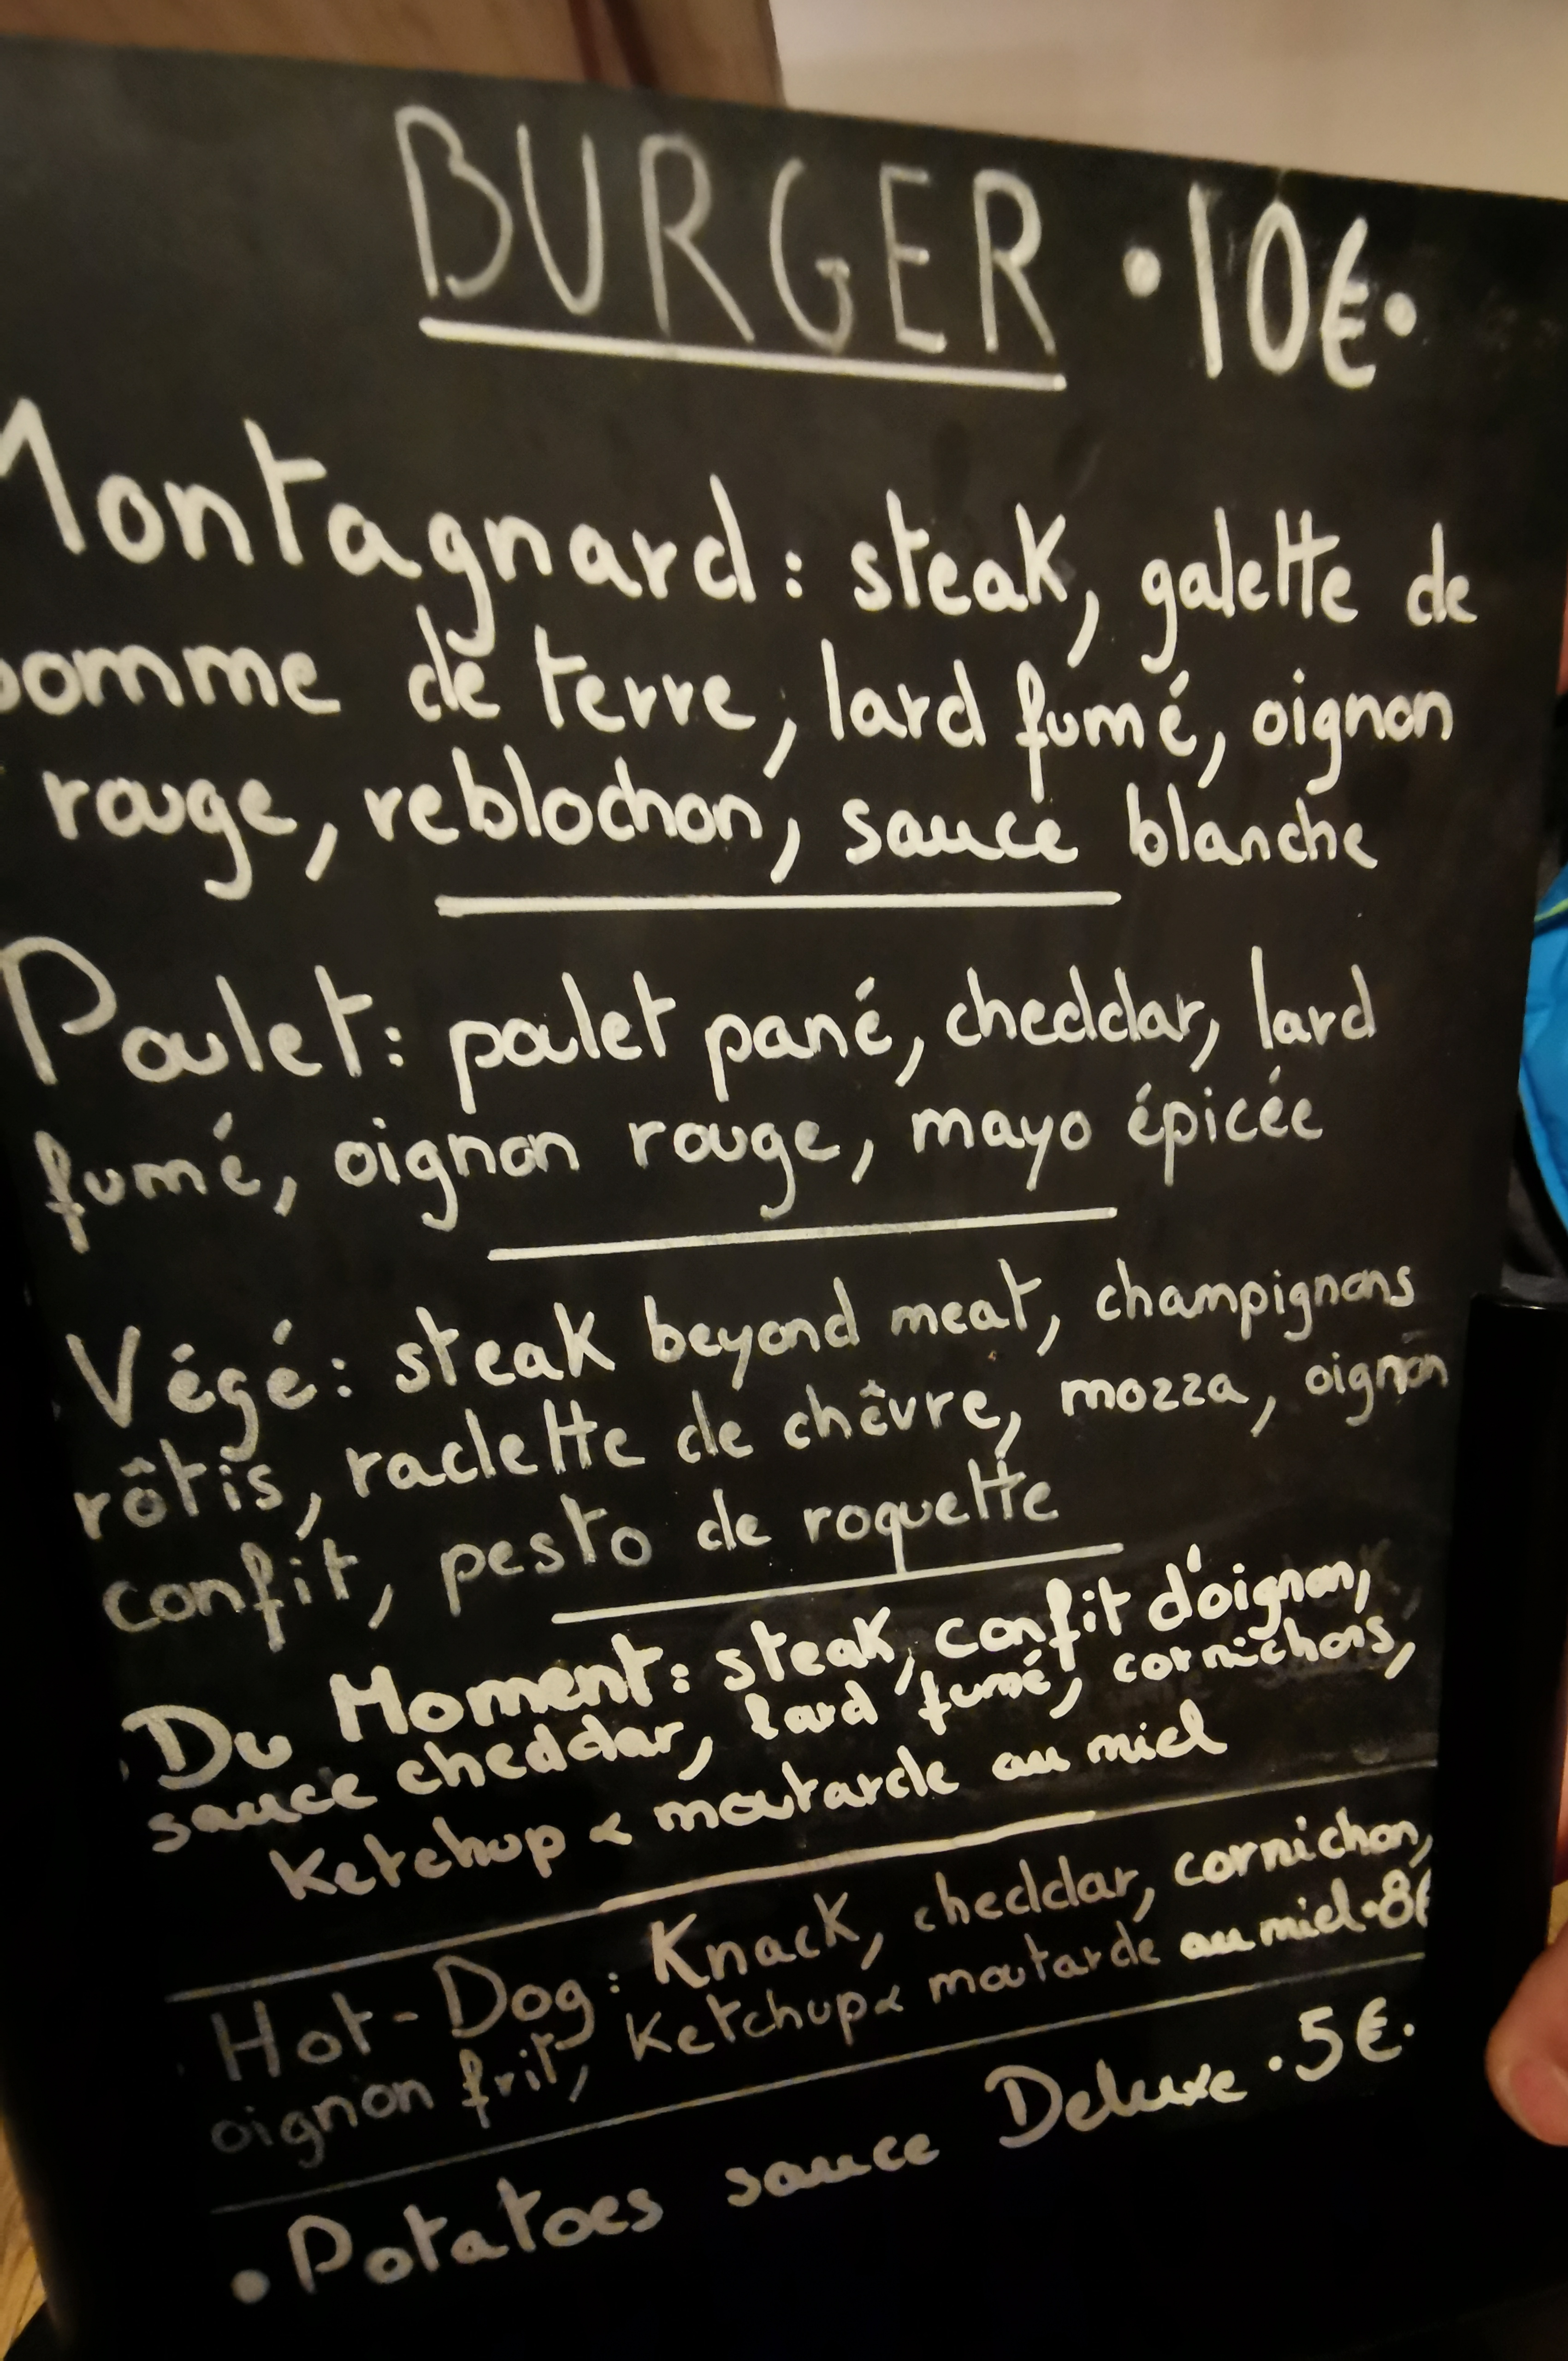 BURGER • 10€ •
Montagnard : steak, galette de
pomme de terre, lard fumé, oignon
rouge, reblochon, sauce blanche
Poulet : poulet pané, cheddar, lard
fumé, oignon rouge, mayo épicée
Végé : steak beyond meat, champignons
rôtis, raclette de chêvre, mozza, oignon
confit, pesto de roquette
Du Moment : steak, confit d'oignon,
sauce cheddar, lard fumé, cornichons,
Ketchup & moutarde au miel
Hot-Dog : Knack, cheddar, cornichon,
oignon frit, Ketchup & moutarde au miel • 8€
• Potatoes sauce Deluxe • 5€ •